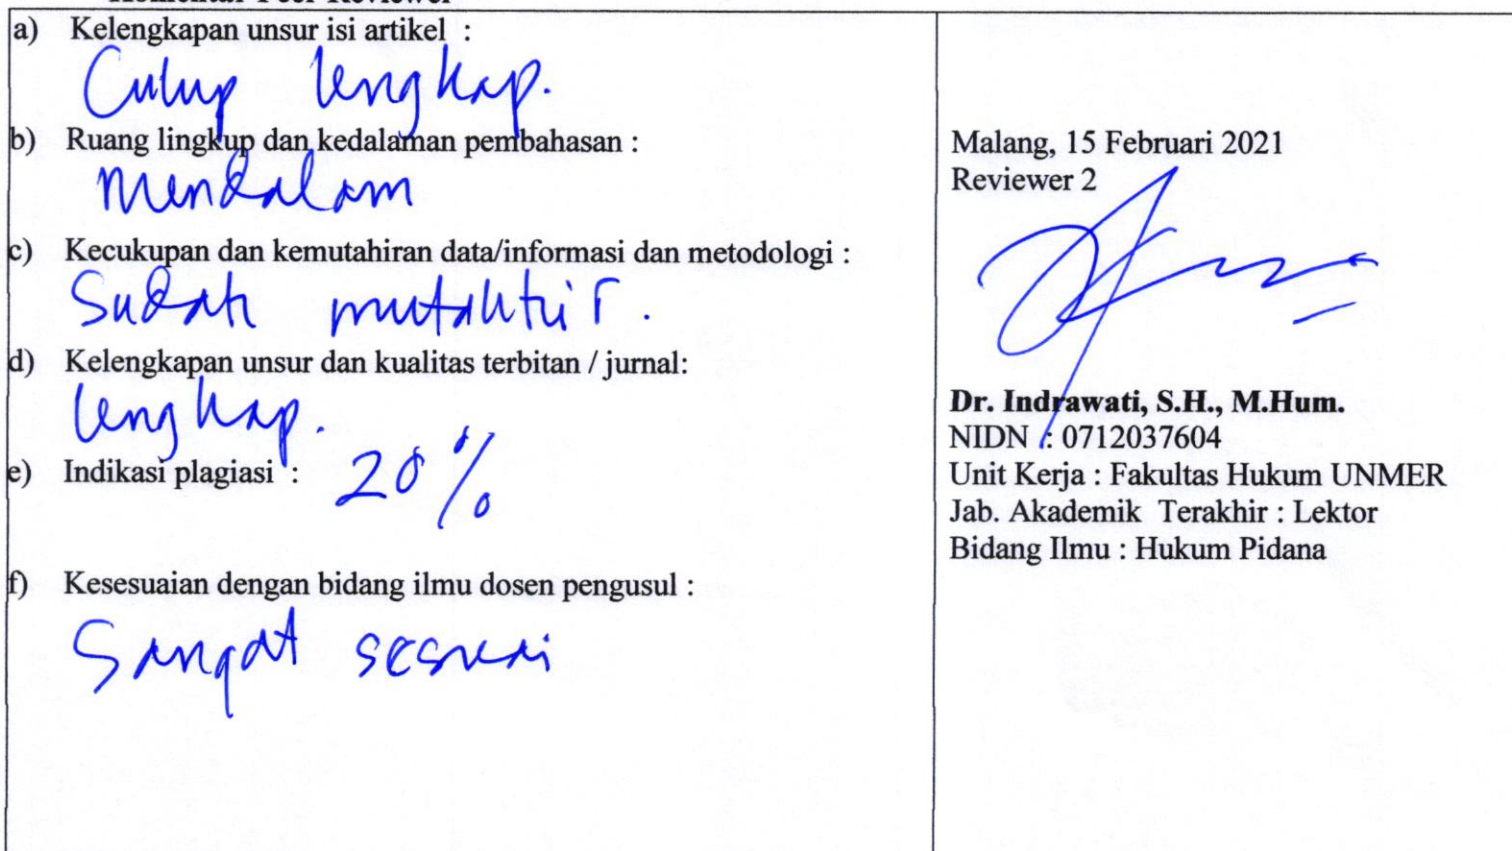 Komentar Peer Reviewer
a) Kelengkapan unsur isi artikel :
Cukup lengkap.
b) Ruang lingkup dan kedalaman pembahasan :
Mendalam
c) Kecukupan dan kemutahiran data/informasi dan metodologi :
Sudah mutakhir.
d) Kelengkapan unsur dan kualitas terbitan / jurnal:
lengkap.
e) Indikasi plagiasi : 20 %
f) Kesesuaian dengan bidang ilmu dosen pengusul :
Sangat sesuai
Malang, 15 Februari 2021
Reviewer 2
Dr. Indrawati, S.H., M.Hum.
NIDN : 0712037604
Unit Kerja : Fakultas Hukum UNMER
Jab. Akademik Terakhir : Lektor
Bidang Ilmu : Hukum Pidana